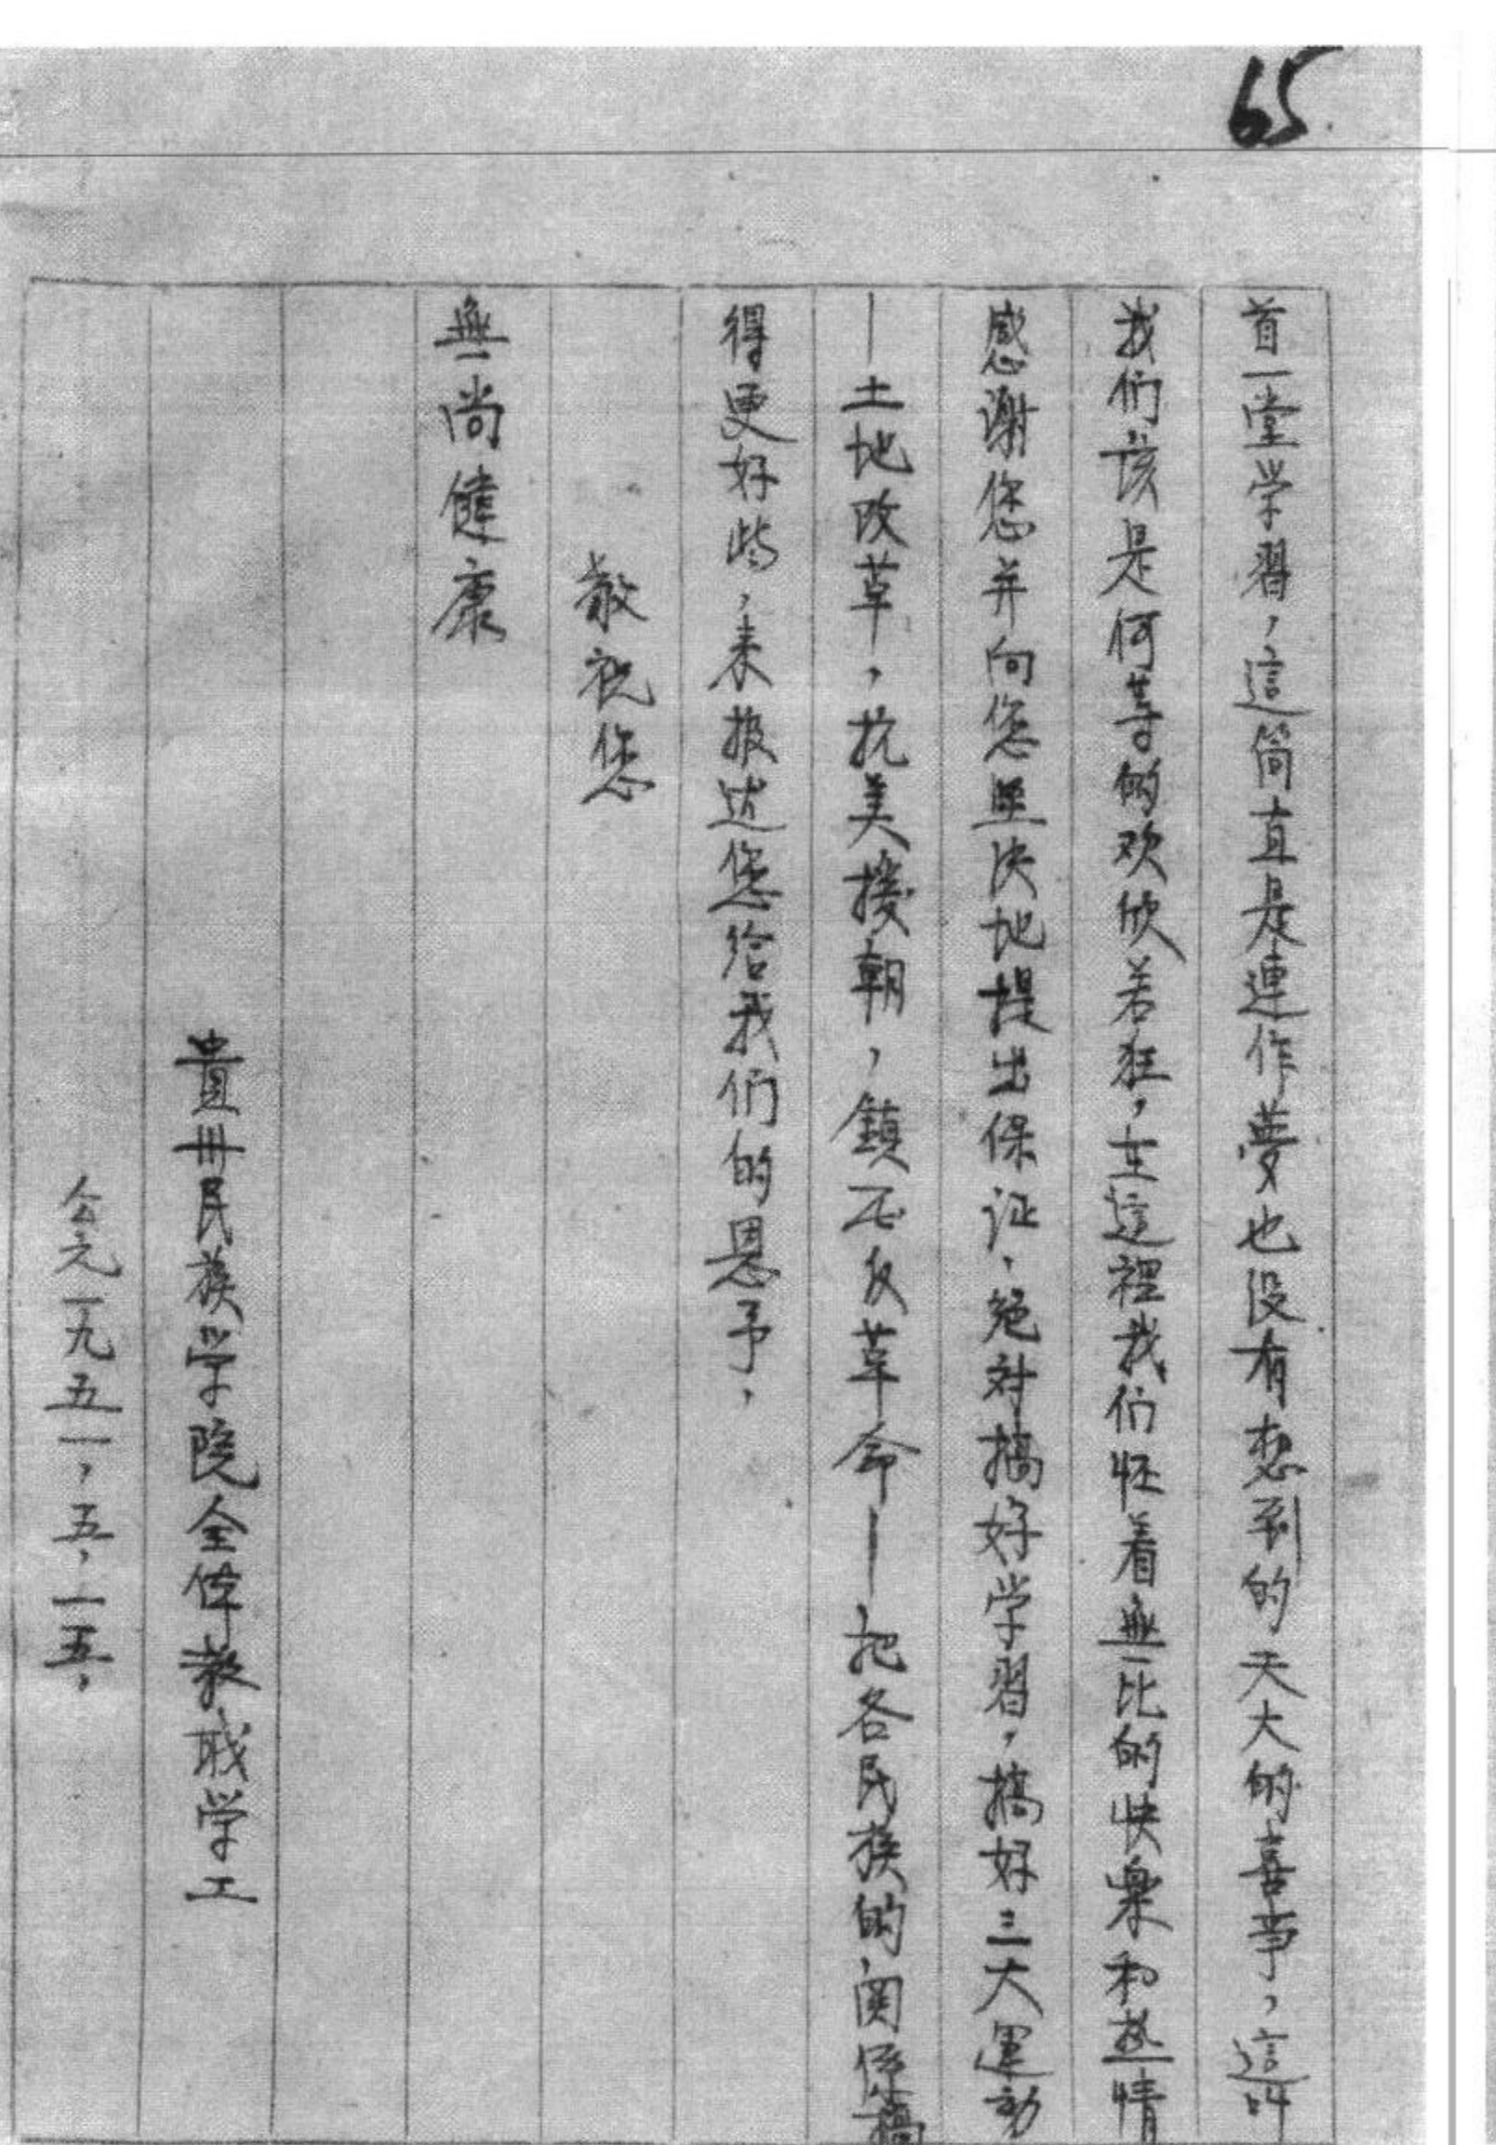 65
首一堂学習，這简直是連作夢也没有想到的天大的喜事，這叫
我们该是何等的欢欣若狂，在這裡我们怀着無比的快樂和热情
感谢您并向您坚决地提出保证，绝对搞好学習，搞好三大運动
—土地改革，抗美援朝，鎮压反革命—把各民族的関係搞
得更好些，来报述您给我们的恩予，
敬祝您
無尚健康
貴州民族学院全体教职学工
公元一九五一，五，一五，